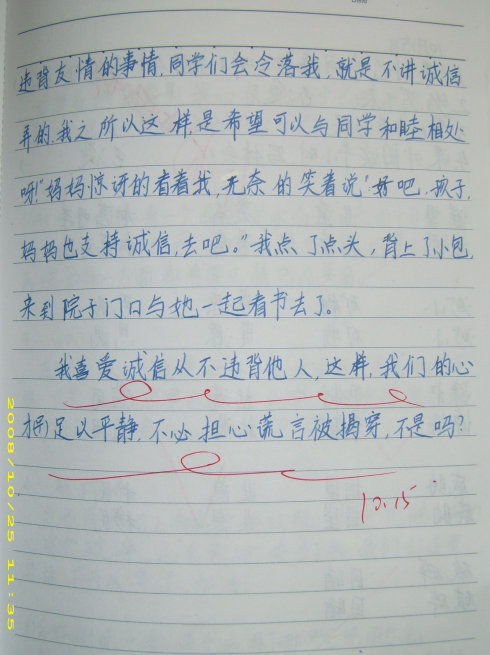 违背友情的事情,同学们会冷落我,就是不讲诚信
弄的,我之所以这样,是希望可以与同学和睦相处
呀!"妈妈惊讶的看着我,无奈的笑着说"好吧,孩子,
妈妈也支持诚信,去吧。"我点了点头,背上了小包,
来到院子门口与她一起看书去了。
我喜爱诚信从不违背他人,这样,我们的心
足以平静,不必担心谎言被揭穿,不是吗?
10.15
2008/10/25 11:35